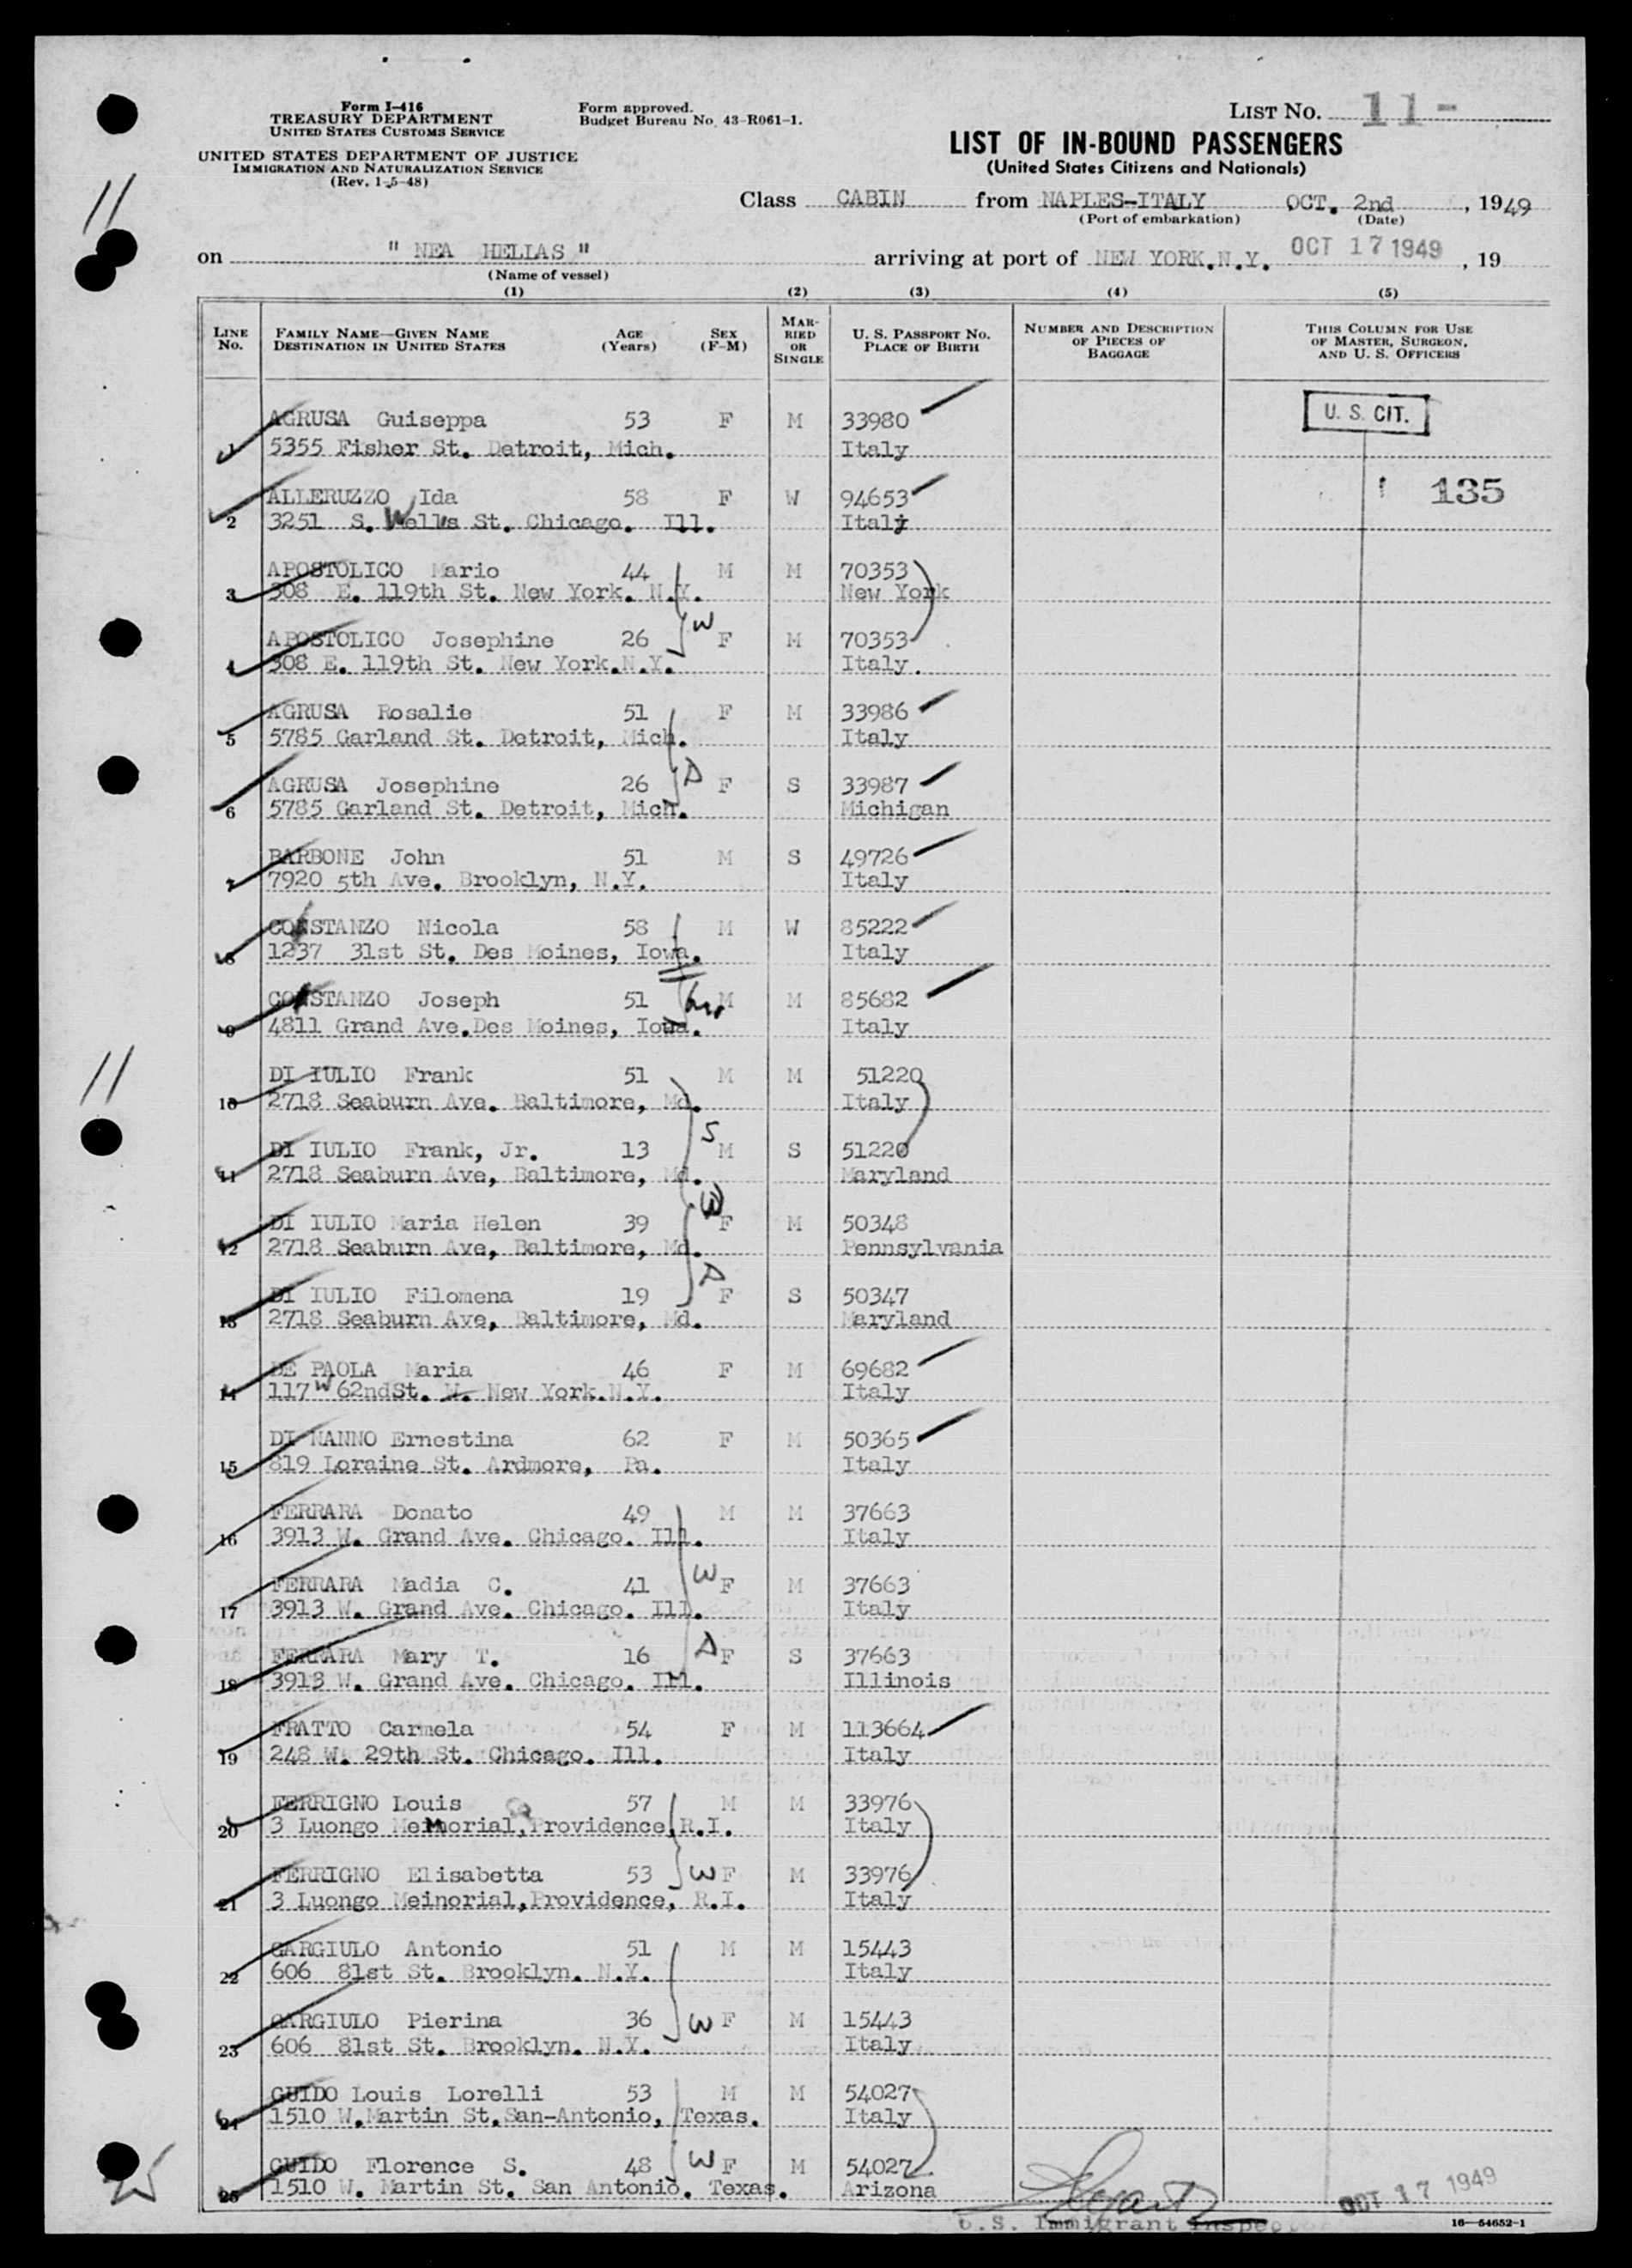 Form I-416
TREASURY DEPARTMENT
UNITED STATES CUSTOMS SERVICE
UNITED STATES DEPARTMENT OF JUSTICE
IMMIGRATION AND NATURALIZATION SERVICE
(Rev. 1-5-48)
Form approved.
Budget Bureau No. 43-R061-1.
LIST NO. 11-
LIST OF IN-BOUND PASSENGERS
(United States Citizens and Nationals)
Class CABIN from NAPLES-ITALY OCT. 2nd, 1949
(Port of embarkation) (Date)
on " NEA HELLAS " arriving at port of NEW YORK.N.Y. OCT 17 1949, 19
(Name of vessel)
(1) (2) (3) (4) (5)
LINE NO. FAMILY NAME—GIVEN NAME DESTINATION IN UNITED STATES AGE (Years) SEX (F-M) MARRIED OR SINGLE U. S. PASSPORT NO. PLACE OF BIRTH NUMBER AND DESCRIPTION OF PIECES OF BAGGAGE THIS COLUMN FOR USE OF MASTER, SURGEON, AND U. S. OFFICERS
AGRUSA Guiseppa 53 F M 33980 U. S. CIT.
1 5355 Fisher St. Detroit, Mich. Italy
ALLERUZZO Ida 58 F W 94653 135
2 3251 S. Wells St. Chicago. Ill. Italy
APOSTOLICO Mario 44 M M 70353
3 308 E. 119th St. New York. N.Y. New York
APOSTOLICO Josephine 26 W F M 70353
4 308 E. 119th St. New York.N.Y. Italy.
AGRUSA Rosalie 51 F M 33986
5 5785 Garland St. Detroit, Mich. Italy
AGRUSA Josephine 26 D F S 33987
6 5785 Garland St. Detroit, Mich. Michigan
BARBONE John 51 M S 49726
7 7920 5th Ave. Brooklyn, N.Y. Italy
CONSTANZO Nicola 58 M W 85222
8 1237 31st St. Des Moines, Iowa. Italy
CONSTANZO Joseph 51 M M 85682
9 4811 Grand Ave.Des Moines, Iowa. Italy
DI IULIO Frank 51 M M 51220
10 2718 Seaburn Ave. Baltimore, Md. Italy
DI IULIO Frank, Jr. 13 S M S 51220
11 2718 Seaburn Ave, Baltimore, Md. Maryland
DI IULIO Maria Helen 39 W F M 50348
12 2718 Seaburn Ave, Baltimore, Md. Pennsylvania
DI IULIO Filomena 19 D F S 50347
13 2718 Seaburn Ave, Baltimore, Md. Maryland
DE PAOLA Maria 46 F M 69682
14 117 W 62ndSt. W. New York.N.Y. Italy
DI NANNO Ernestina 62 F M 50365
15 819 Loraine St. Ardmore, Pa. Italy
FERRARA Donato 49 M M 37663
16 3913 W. Grand Ave. Chicago. Ill. Italy
FERRARA Madia C. 41 W F M 37663
17 3913 W. Grand Ave. Chicago. Ill. Italy
FERRARA Mary T. 16 D F S 37663
18 3913 W. Grand Ave. Chicago. Ill. Illinois
FRATTO Carmela 54 F M 113664
19 248 W. 29th St. Chicago. Ill. Italy
FERRIGNO Louis 57 M M 33976
20 3 Luongo Memorial,Providence,R.I. Italy
FERRIGNO Elisabetta 53 W F M 33976
21 3 Luongo Meinorial,Providence, R.I. Italy
GARGIULO Antonio 51 M M 15443
22 606 81st St. Brooklyn. N.Y. Italy
GARGIULO Pierina 36 W F M 15443
23 606 81st St. Brooklyn. N.Y. Italy
GUIDO Louis Lorelli 53 M M 54027
24 1510 W.Martin St.San-Antonio, Texas. Italy
GUIDO Florence S. 48 W F M 54027
25 1510 W. Martin St. San Antonio. Texas. Arizona
OCT 17 1949
U.S. Immigrant Inspector
16—54652-1